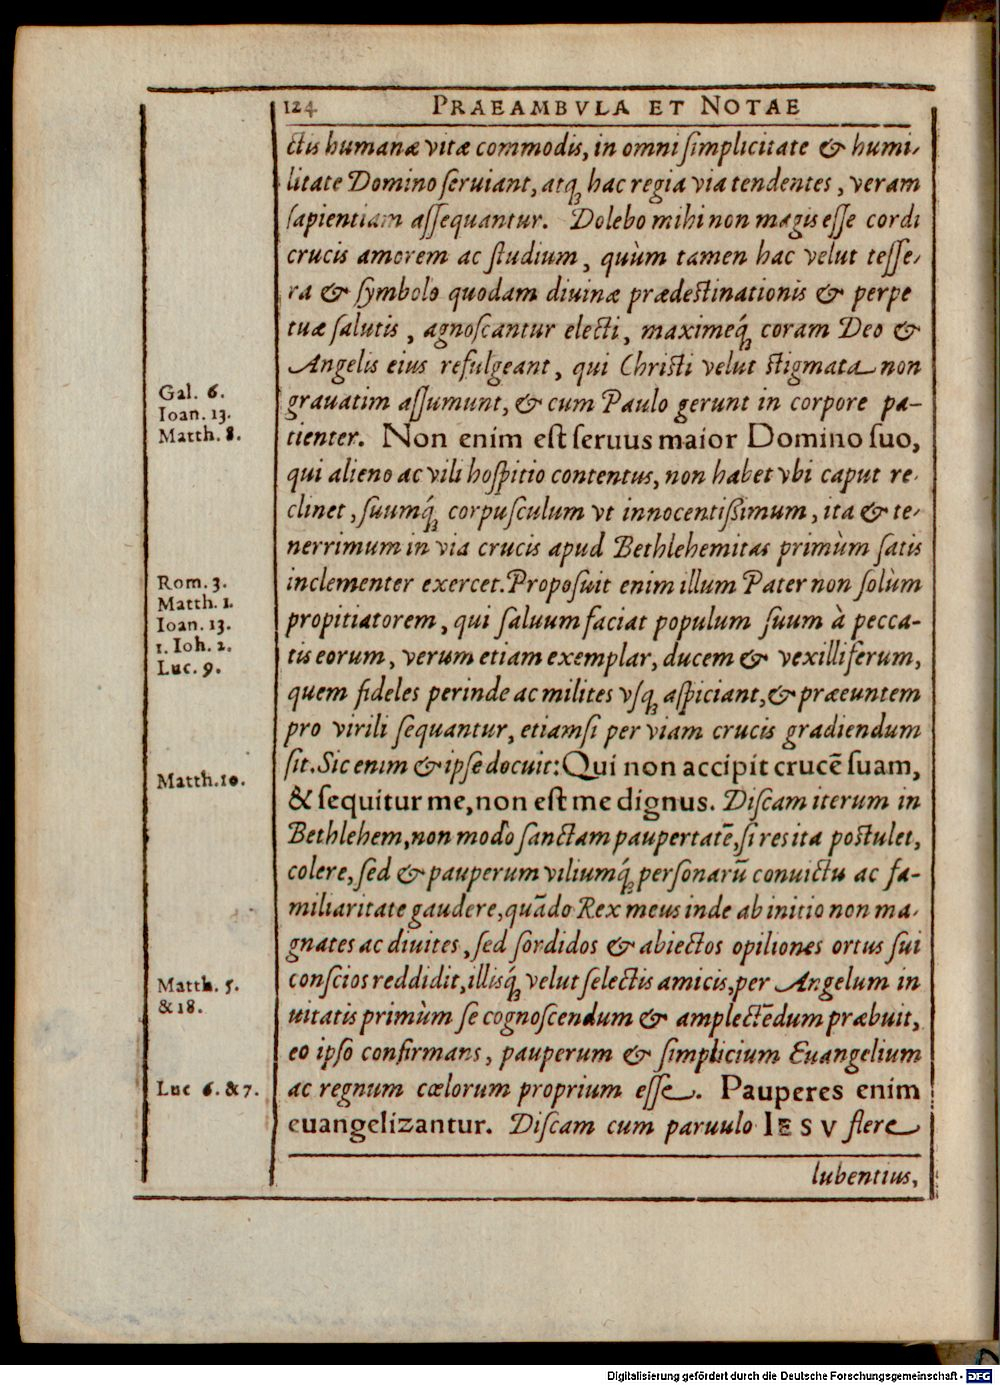 124 PRAEAMBVLA ET NOTAE
ctis humanæ vitæ commodis, in omni simplicitate & humi-
litate Domino seruiant, atq; hac regia via tendentes, veram
sapientiam assequantur. Dolebo mihi non magis esse cordi
crucis amorem ac studium, quùm tamen hac velut tesse-
ra & symbolo quodam diuinæ prædestinationis & perpe
tuæ salutis, agnoscantur electi, maximeq́; coram Deo &
Angelis eius refulgeant, qui Christi velut stigmata non
Gal. 6.
grauatim assumunt, & cum Paulo gerunt in corpore pa-
Ioan. 13.
Matth. 8.
tienter. Non enim est seruus maior Domino suo,
qui alieno ac vili hospitio contentus, non habet vbi caput re-
clinet, suumq́; corpusculum vt innocentissimum, ita & te-
nerrimum in via crucis apud Bethlehemitas primùm satis
Rom. 3.
inclementer exercet. Proposuit enim illum Pater non solùm
Matth. 1.
Ioan. 13.
propitiatorem, qui saluum faciat populum suum à pecca-
1. Ioh. 2.
Luc. 9.
tis eorum, verum etiam exemplar, ducem & vexilliferum,
quem fideles perinde ac milites vsq; aspiciant, & præeuntem
pro virili sequantur, etiamsi per viam crucis gradiendum
Matth. 10.
sit. Sic enim & ipse docuit: Qui non accipit crucē suam,
& sequitur me, non est me dignus. Discam iterum in
Bethlehem, non modo sanctam paupertatē, si res ita postulet,
colere, sed & pauperum viliumq́; personarū conuictu ac fa-
miliaritate gaudere, quādo Rex meus inde ab initio non ma-
gnates ac diuites, sed sordidos & abiectos opiliones ortus sui
Matth. 5.
& 18.
conscios reddidit, illisq́; velut selectis amicis, per Angelum in
uitatis primùm se cognoscendum & amplectēdum præbuit,
eo ipso confirmans, pauperum & simplicium Euangelium
Luc 6. & 7.
ac regnum cœlorum proprium esse. Pauperes enim
euangelizantur. Discam cum paruulo IESV flere
lubentius,
Digitalisierung gefördert durch die Deutsche Forschungsgemeinschaft - DFG